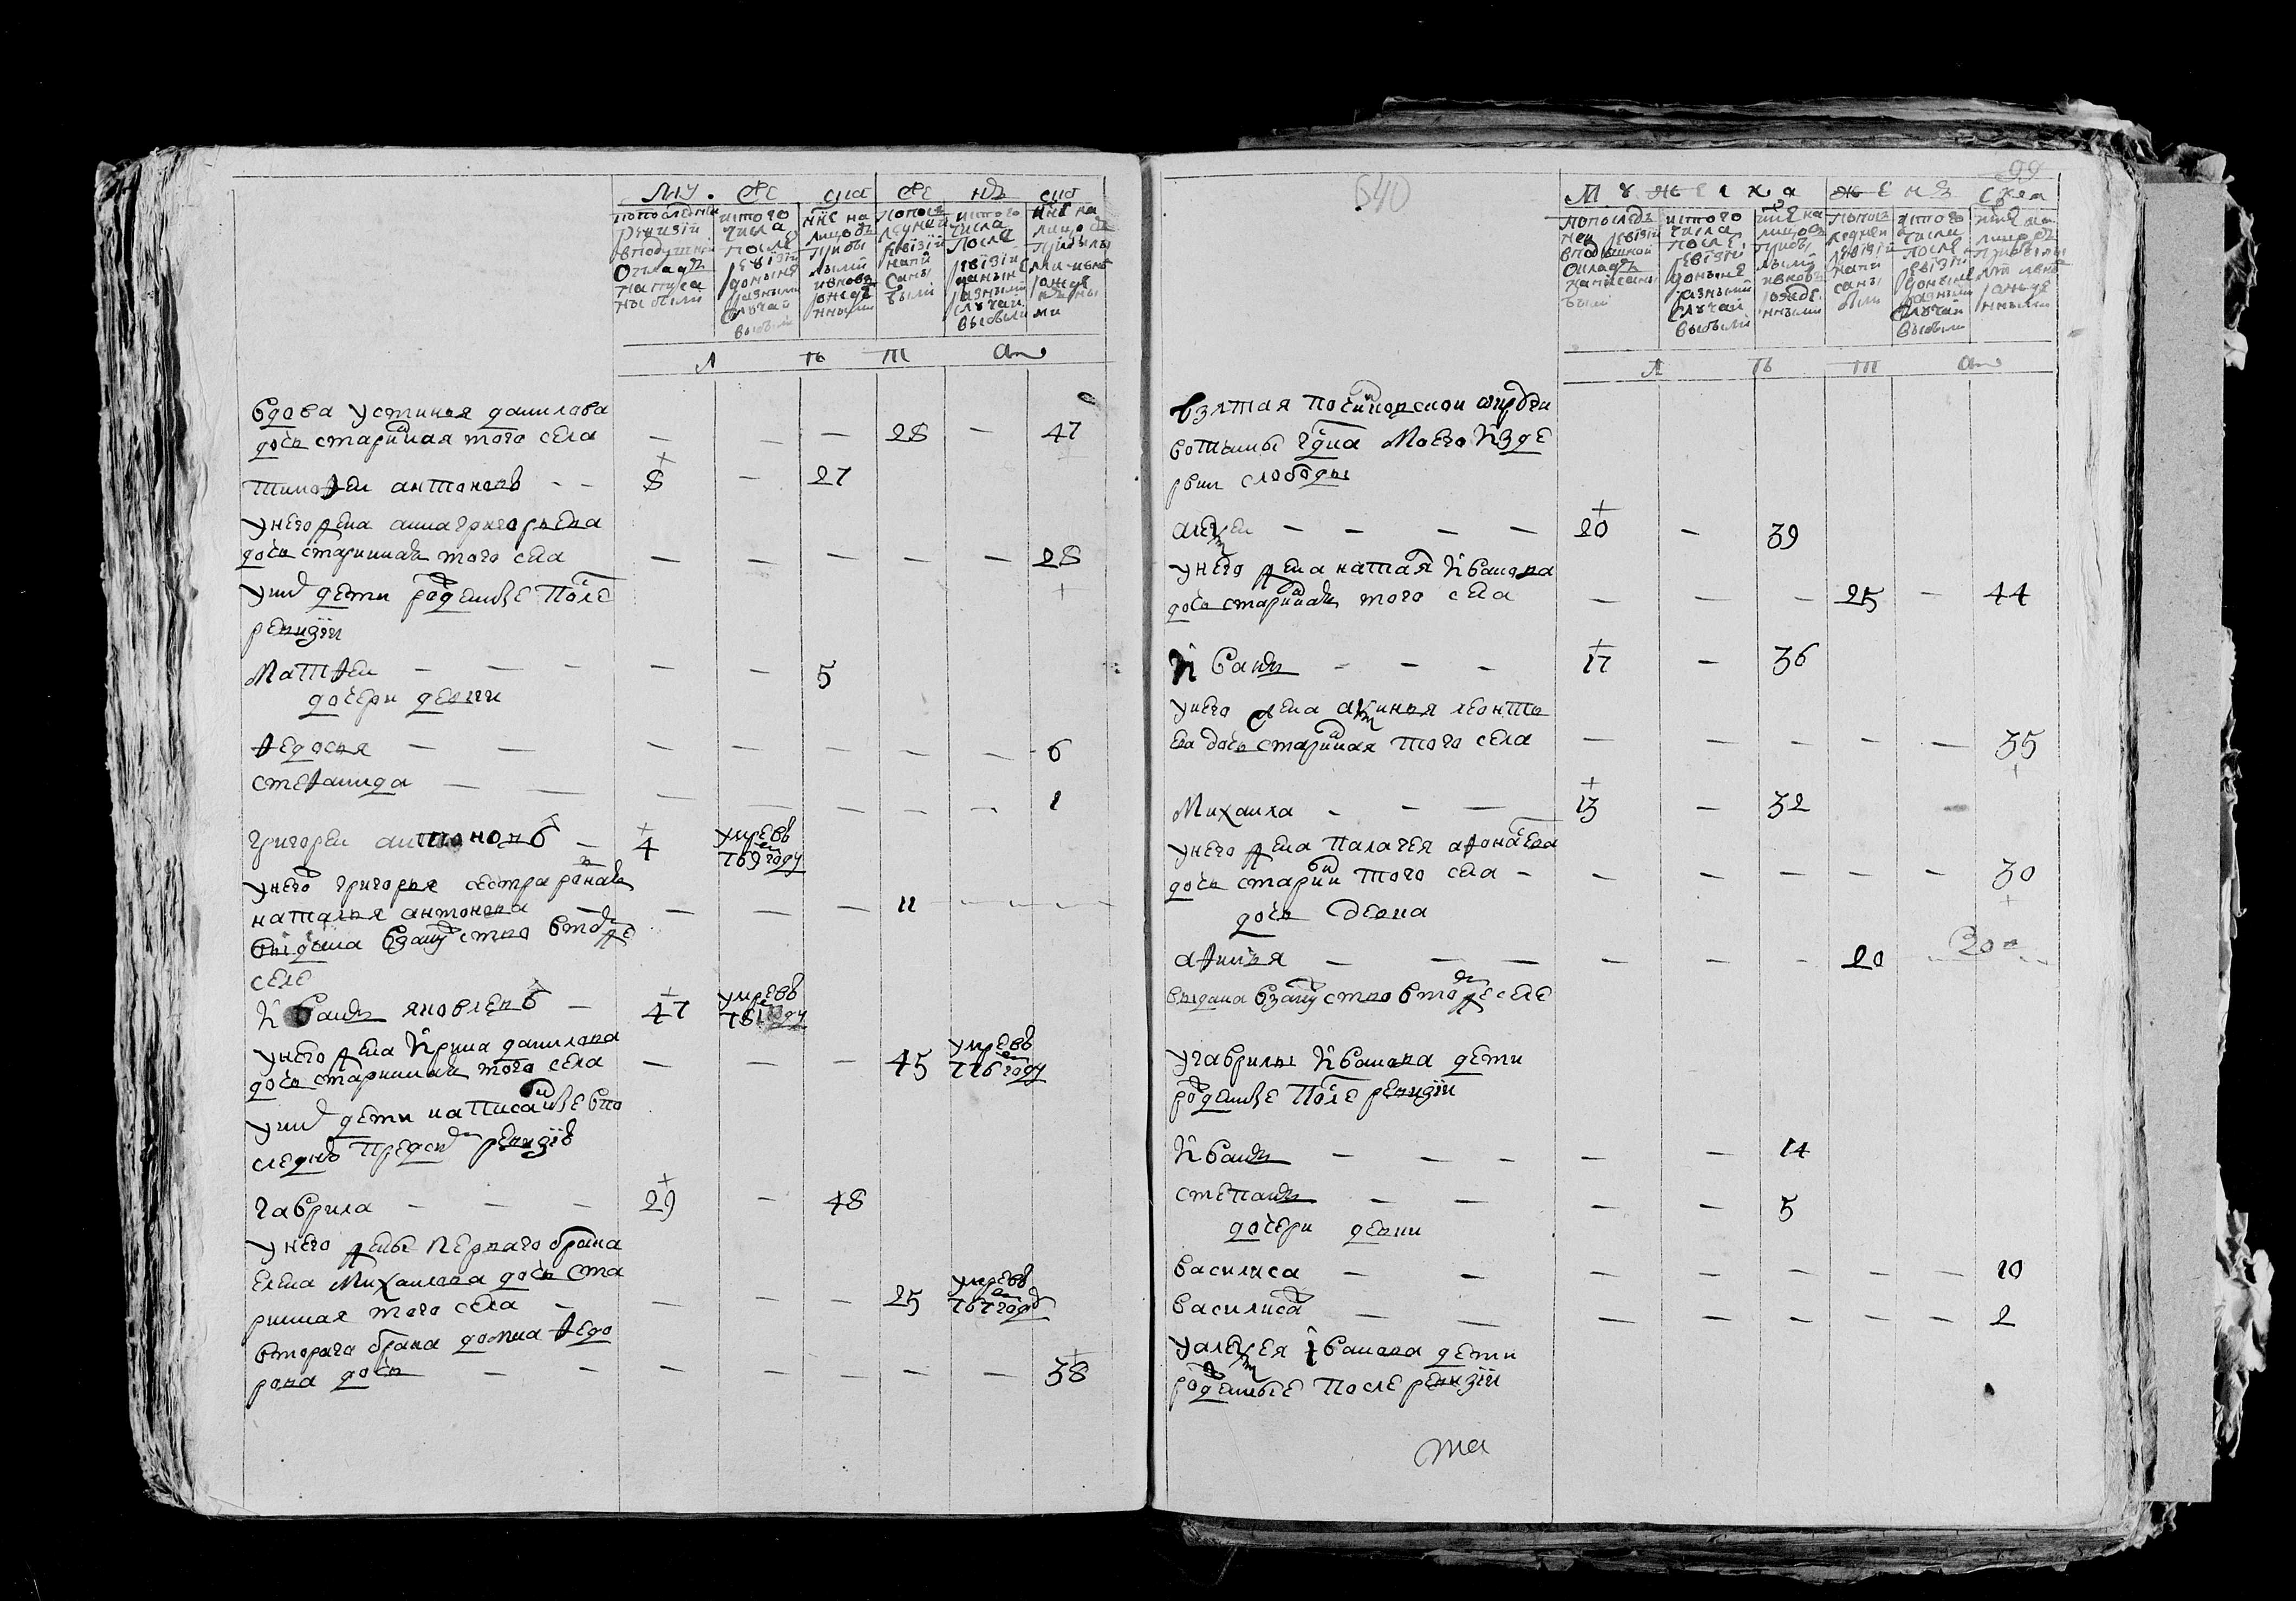 Му же ска же нъ ска
попоследней ревизии вподушной окладъ написаны были
итого числа после ревизии доныне разными случаи выбыли
ныне налицо съ прибылыми ивновь рожденными
попоследней ревизии написаны были
итого числа после ревизии доныне разными случаи выбыли
ныне налицо съ прибылыми ивновь рожденными
Л ѣ т а
вдова устинья данилова
дочь старинная того села — — — 28 — 47
тимофеи антоновъ — — 8 — 27
унего жена анна григорьева
дочь стариннаяжъ того села — — — — — 28
уних дети рожденные после
ревизии
Матфеи — — — — — 5
дочери девки
федосья — — — — — — — 6
стефанида — — — — — — — 1
григореи антоновъ — 4 умревъ 769 году
унего григорья сестра роднаяжъ
наталья антонова — — — — 11 — — —
выдана взамужство втомже
селе
Иванъ яковлевъ — 47 умревъ 781 году
унего жена Ирина данилова
дочь стариннаяжъ того села — — — 45 умревъ 776 году
уних дети написанные впо
следней пред сей ревизиѣ
гаврила — — — 29 — 48
унего жены первого брака
елена Михаилова дочь ста
ринная того села — — — — 25 умревъ 767 году
второго брака домна федо
рова дочь — — — — — — — 38
640
99
М у ж е с к а ж е н з ска
попоследней ревизии вподушной окладъ написаны были
итого числа после ревизии доныне разными случаи выбыли
ныне налицо съ прибылыми ивновь рожденными
попоследней ревизии написаны были
итого числа после ревизии доныне разными случаи выбыли
ныне налицо съ прибылыми ивновь рожденными
Л ѣ т а
взятая посимбирской округи
вотчины гдна Моего Изде
рвки слободы
алеѯеи — — — — 20 — 39
унего жена наталья Иванова
дочь стариннаяжъ того села — — — 25 — 44
Иванъ — — — 17 — 36
унего жена аѯинья леонть
ева дочь старинная того села — — — — — 35
Михаила — — — 13 — 32
унего жена палагея афонасева
дочь старин того села — — — — — — 30
дочь девка
афимья — — — — — — 20 — 20 —
выдана взамужство втомже селе
угаврилы Иванова дети
рожденные после ревизии
Иванъ — — — — — 14
степанъ — — — — 5
дочери девки
василиса — — — — — — — 10
василиса — — — — — — — 2
уалеѯея Іванова дети
рожденные после ревизии
ма